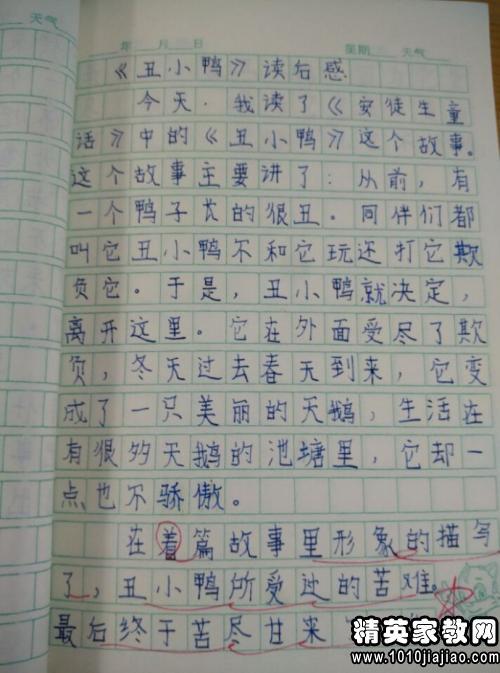 天气
年 月 日 星期 天气
《丑小鸭》读后感
今天，我读了《安徒生童
话》中的《丑小鸭》这个故事。
这个故事主要讲了：从前，有
一个鸭子长的很丑。同伴们都
叫它丑小鸭不和它玩还打它欺
负它。于是，丑小鸭就决定，
离开这里。它在外面受尽了欺
负，冬天过去春天到来，它变
成了一只美丽的天鹅，生活在
有很多天鹅的池塘里，它却一
点也不骄傲。
在着篇故事里形象的描写
了，丑小鸭所受过的苦难。
最后终于苦尽甘来
精英家教网
www.1010jiajiao.com